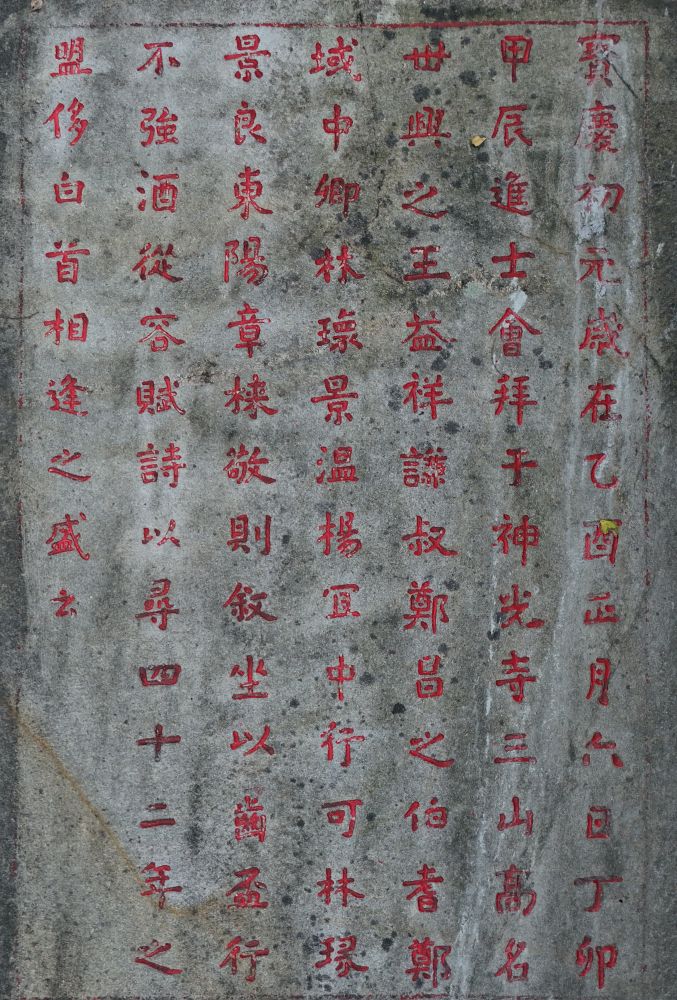 寶慶初元歲在乙酉正月六日丁卯
甲辰進士會拜于神光寺三山高名
世興之王益祥謙叔鄭昌之伯耆鄭
域中卿林瓌景溫楊宜中行可林琭
景良東陽章棟敬則敘坐以齒盃行
不強酒從容賦詩以尋四十二年之
盟侈白首相逢之盛云